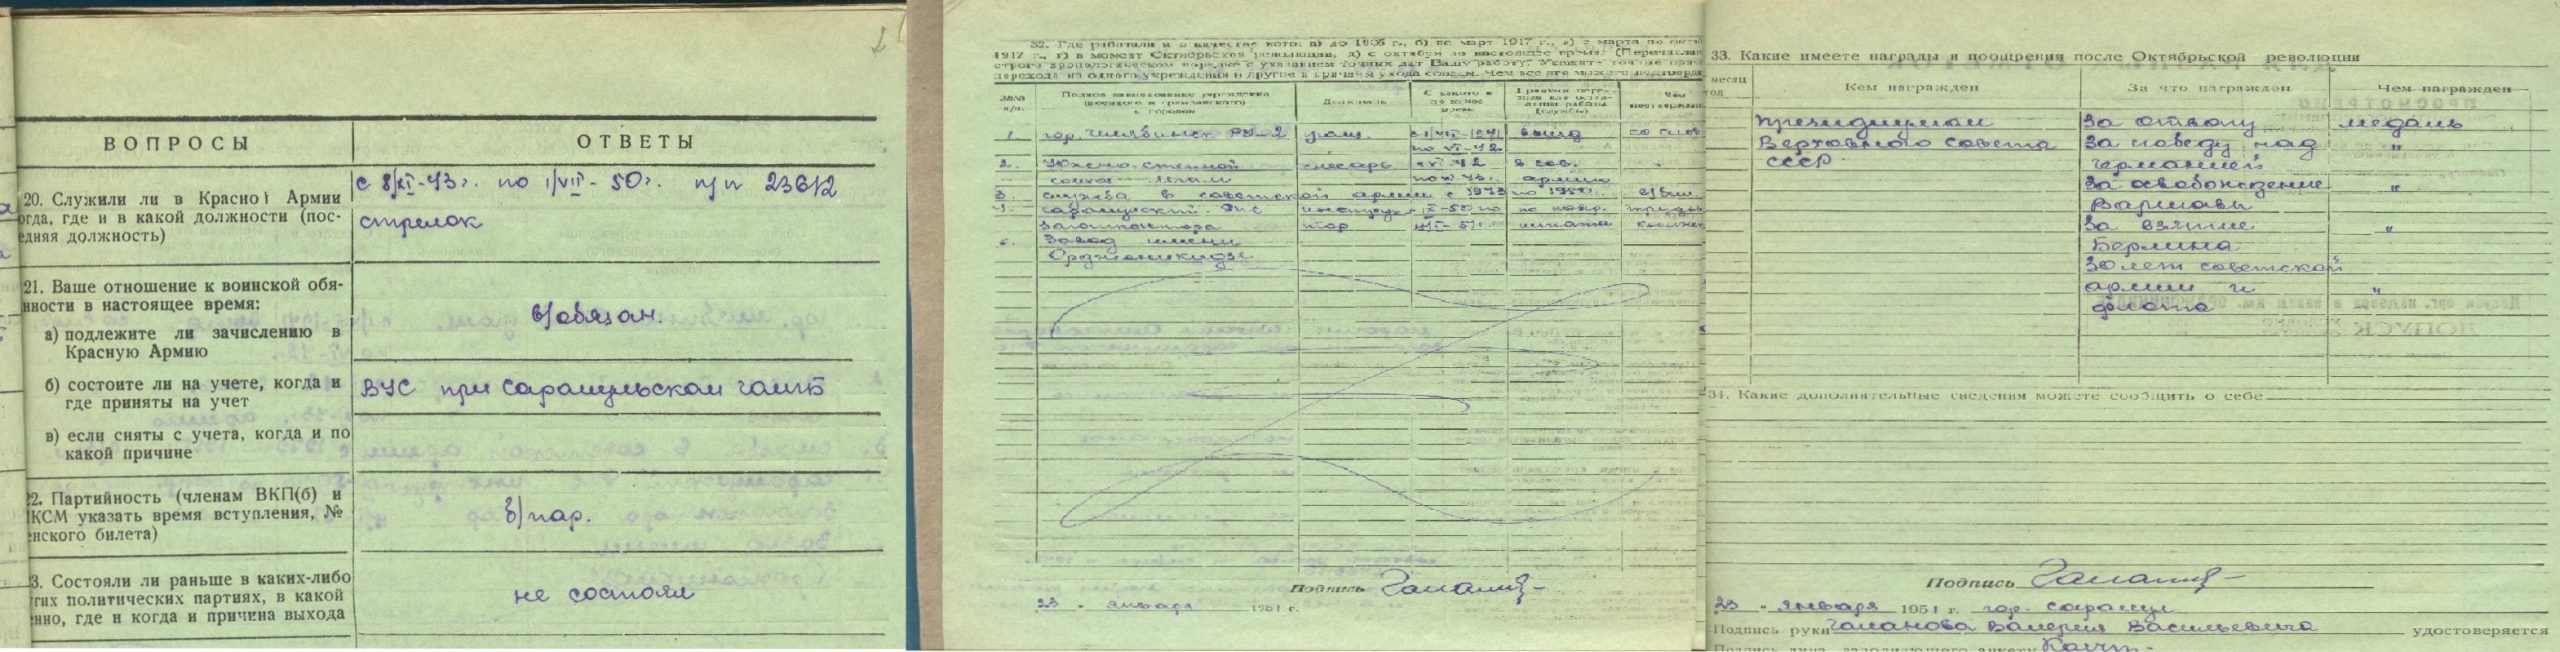 ВОПРОСЫ
ОТВЕТЫ
20. Служили ли в Красной Армии
огда, где и в какой должности (пос-
едняя должность)
с 8/XI-43г. по 1/VII-50г. п/п 23612
стрелок
21. Ваше отношение к воинской обя-
нности в настоящее время:
а) подлежите ли зачислению в
Красную Армию
в/обязан.
б) состоите ли на учете, когда и
где приняты на учет
ВУС при Сарапульском
в) если сняты с учета, когда и по
какой причине
22. Партийность (членам ВКП(б) и
КСМ указать время вступления, №
енского билета)
б/пар.
3. Состояли ли раньше в каких-либо
гих политических партиях, в какой
нно, где и когда и причина выхода
не состоял
32. Где работали и в качестве кого: а) до 1905 г., б) по март 1917 г., в) с марта по октя
1917 г., г) в момент Октябрьской революции, д) с октября по настоящее время. (Перечислит
строго хронологическом порядке с указанием точных дат Вашу работу. Укажите точные прич
перехода из одного учреждения в другое и причин ухода совсем. Чем все это можете подтверд
№№ п/п.
Полное наименование учреждения (военного и гражданского) с городом
Должность
С какого и по какое время
1. гор. Челябинск РУ-2 учащ. с 1/VII-1941 выезд со слов
по VI-42
2. Южно-степной слесарь с VI 42 в сов. "
по XI 43г. армию
3. служба в советской армии с 1943 по 1950г.
4. Сарапульский инструк- IX-50 по
Заготконтора тор
5. Завод имени
Орджоникидзе
Подпись
23 - января 1951 г.
33. Какие имеете награды и поощрения после Октябрьской революции
месяц
год
Кем награжден
За что награжден
Чем награжден
Президиумом За отвагу медаль
Верховного Совета За победу над "
СССР Германией
За освобождение "
Варшавы
За взятие "
Берлина
30 лет советской
армии и "
флота
34. Какие дополнительные сведения можете сообщить о себе
Подпись
23 - января 1951 г. гор. Сарапул
Подпись руки Галанова Валерия Васильевича удостоверяется